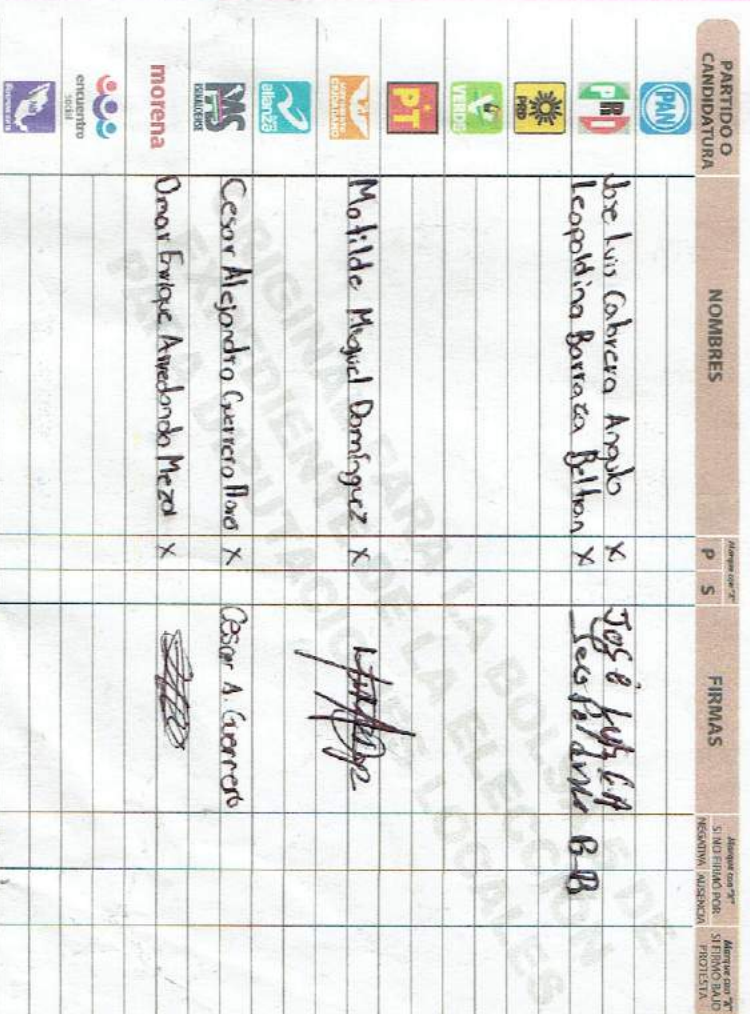 PARTIDO O CANDIDATURA
NOMBRES
Marque con "X"
P S
FIRMAS
Marque con "X"
SI NO FIRMÓ POR
NEGATIVA AUSENCIA
Marque con "X"
SI FIRMÓ BAJO
PROTESTA
PAN
PRI
Jose Luis Cabrera Angulo X José Luis C.A
Leopoldina Barraza Beltran X B-B
PRD
VERDE
PT
MOVIMIENTO CIUDADANO
Matilde Miguel Domínguez X
alianza
PAS
SINALOENSE
Cesar Alejandro Guerrero X Cesar A. Guerrero
morena
Omar Enrique Arredondo Meza X
encuentro
social
ORIGINAL PARA LA BOLSA DE
EXPEDIENTE DE LA ELECCIÓN
PARA DIPUTACIONES LOCALES